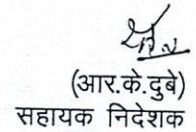 (आर.के.दुबे)
सहायक निदेशक